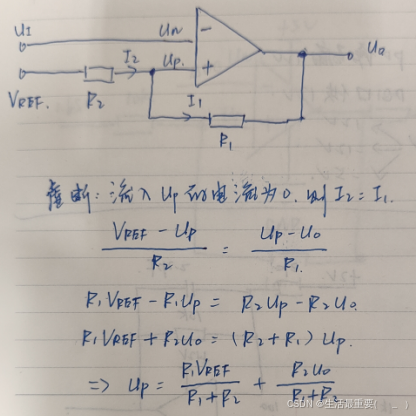 UI
Un
−
I2
Up
+
Uo
VREF.
R2
I1
R1
虚断: 流入 Up 的电流为0. 则 I2 = I1.
(VREF − Up) / R2 = (Up − Uo) / R1.
R1VREF − R1Up = R2Up − R2Uo.
R1VREF + R2Uo = (R2 + R1) Up.
=> Up = R1VREF / (R1 + R2) + R2Uo / (R1 + R2)
CSDN @生活最重要(